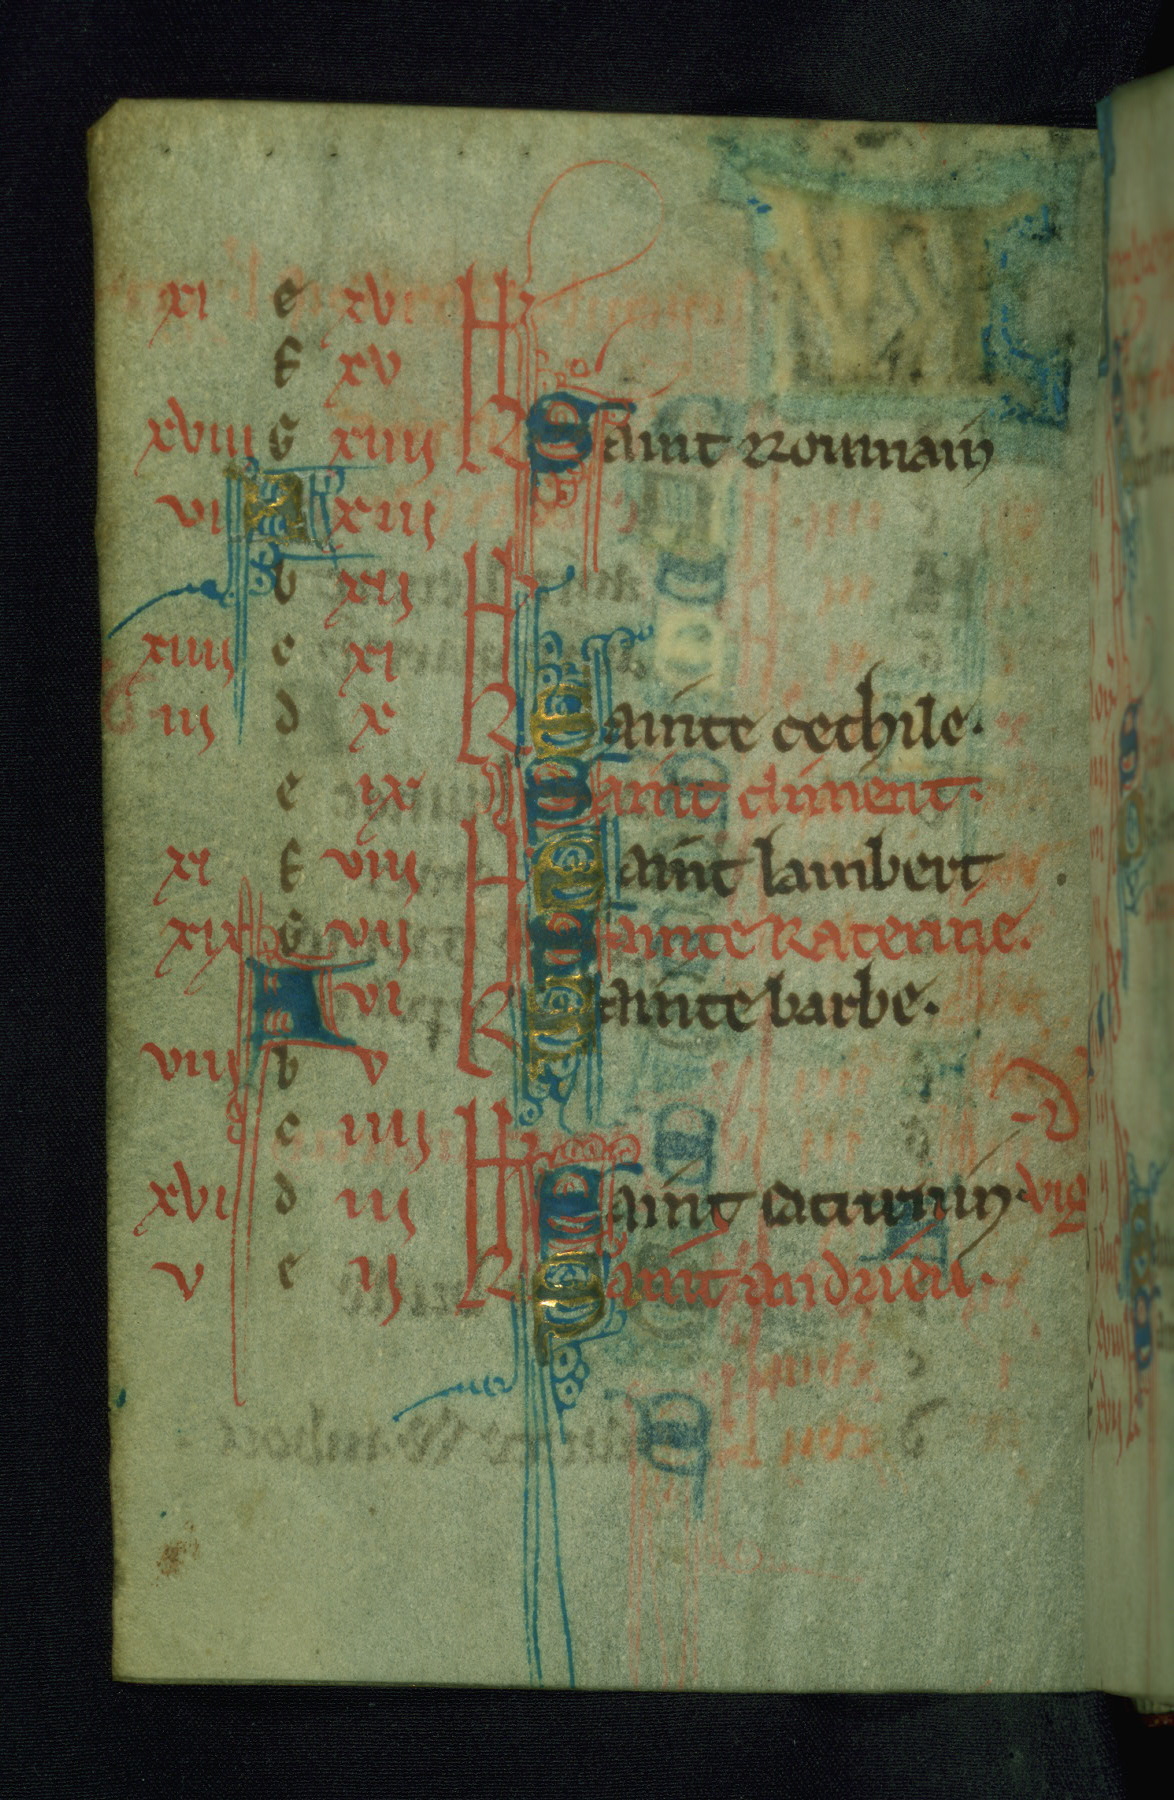 xi e xvi kł
f xv kł
xviii g xiiii kł Saint Roumain
vi A xiii kł
b xii kł
xiiii c xi kł
iii d x kł Sainte cechile.
e ix kł Saint climent.
xi f viii kł Saint lambert
xix g vii kł Sainte Katerine.
A vi kł Sainte barbe.
viii b v kł
c iiii kł
xvi d iii kł Saint saturnin. vig
v e ii kł Saint andrieu.